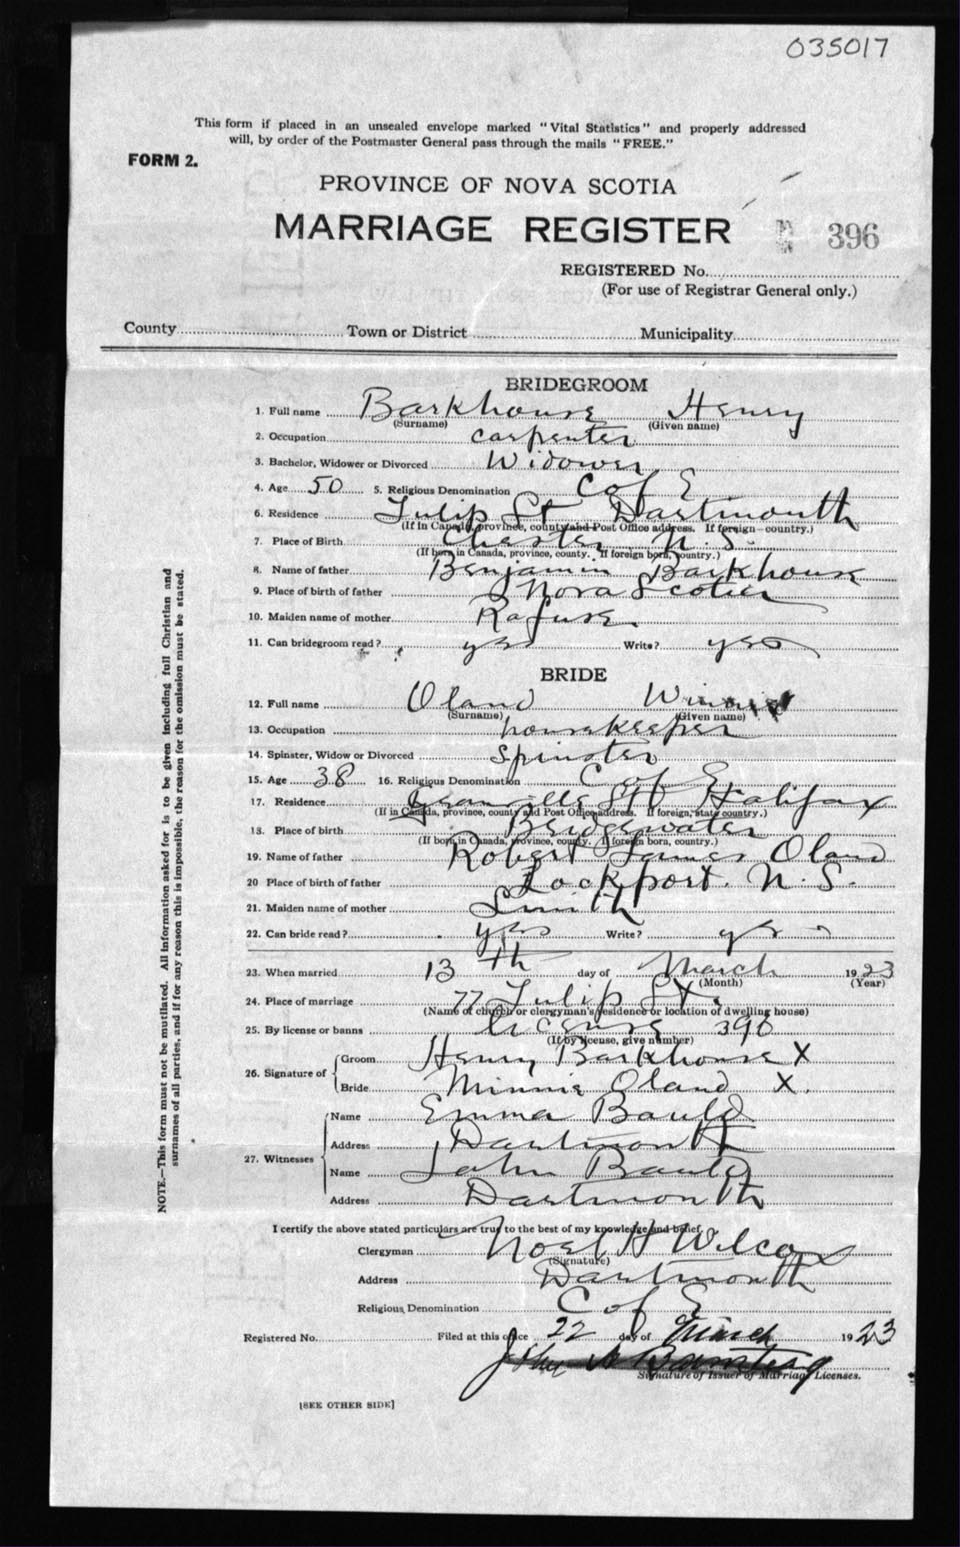 035017
This form if placed in an unsealed envelope marked "Vital Statistics" and properly addressed
will, by order of the Postmaster General pass through the mails "FREE."
FORM 2.
PROVINCE OF NOVA SCOTIA
MARRIAGE REGISTER 396
REGISTERED No.
(For use of Registrar General only.)
County Town or District Municipality
BRIDEGROOM
1. Full name Barkhouse Henry
(Surname) (Given name)
2. Occupation carpenter
3. Bachelor, Widower or Divorced Widower
4. Age 50 5. Religious Denomination C of E
6. Residence Tulip St Dartmouth
(If in Canada, province, county and Post Office address. If foreign country.)
7. Place of Birth Chester N. S.
(If born in Canada, province, county. If foreign born, country.)
8. Name of father Benjamin Barkhouse
9. Place of birth of father Nova Scotia
10. Maiden name of mother Rafuse
11. Can bridegroom read? yes Write? yes
BRIDE
12. Full name Oland
(Surname) (Given name)
13. Occupation housekeeper
14. Spinster, Widow or Divorced Spinster
15. Age 38 16. Religious Denomination C of E
17. Residence Granville St Halifax
(If in Canada, province, county and Post Office address. If foreign, state country.)
18. Place of birth Bridgewater
(If born in Canada, province, county. If foreign born, country.)
19. Name of father Robert James Oland
20 Place of birth of father Lockport. N. S.
21. Maiden name of mother Smith
22. Can bride read? yes Write? yes
23. When married 13 th day of March 1923
(Month) (Year)
24. Place of marriage 77 Tulip St.
(Name of church or clergyman's residence or location of dwelling house)
25. By license or banns license 396
(If by license, give number)
26. Signature of Groom Henry Barkhouse X
Bride Minnie Oland X.
27. Witnesses Name Emma Bauld
Address Dartmouth
Name John Bauld
Address Dartmouth
I certify the above stated particulars are true to the best of my knowledge and belief.
Clergyman Noel H Wilcox
(Signature)
Address Dartmouth
Religious Denomination C of E
Registered No. Filed at this office 22 day of March 1923
Signature of Issuer of Marriage Licenses.
[SEE OTHER SIDE]
NOTE.—This form must not be mutilated. All information asked for is to be given including full Christian and
surnames of all parties, and if for any reason this is impossible, the reason for the omission must be stated.